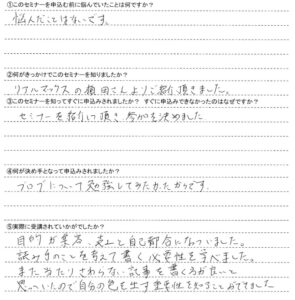 ①このセミナーを申込む前に悩んでいたことは何ですか?
悩んだことはないです。
②何がきっかけでこのセミナーを知りましたか?
リアルマックスの植田さんよりご紹介頂きました。
③このセミナーを知ってすぐに申込みされましたか? すぐに申込みできなかったのはなぜですか?
セミナーを紹介して頂き参加を決めました
④何が決め手となって申込みされましたか?
ブログについて勉強してみたかったからです。
⑤実際に受講されていかがでしたか?
目的が業者、売上と自己都合になっていました。
読み手のことを考えて書く必要性を学べました。
またあたりさわらない記事を書く方が良いと
思っていたので自分の色を出す重要性を知ることができました